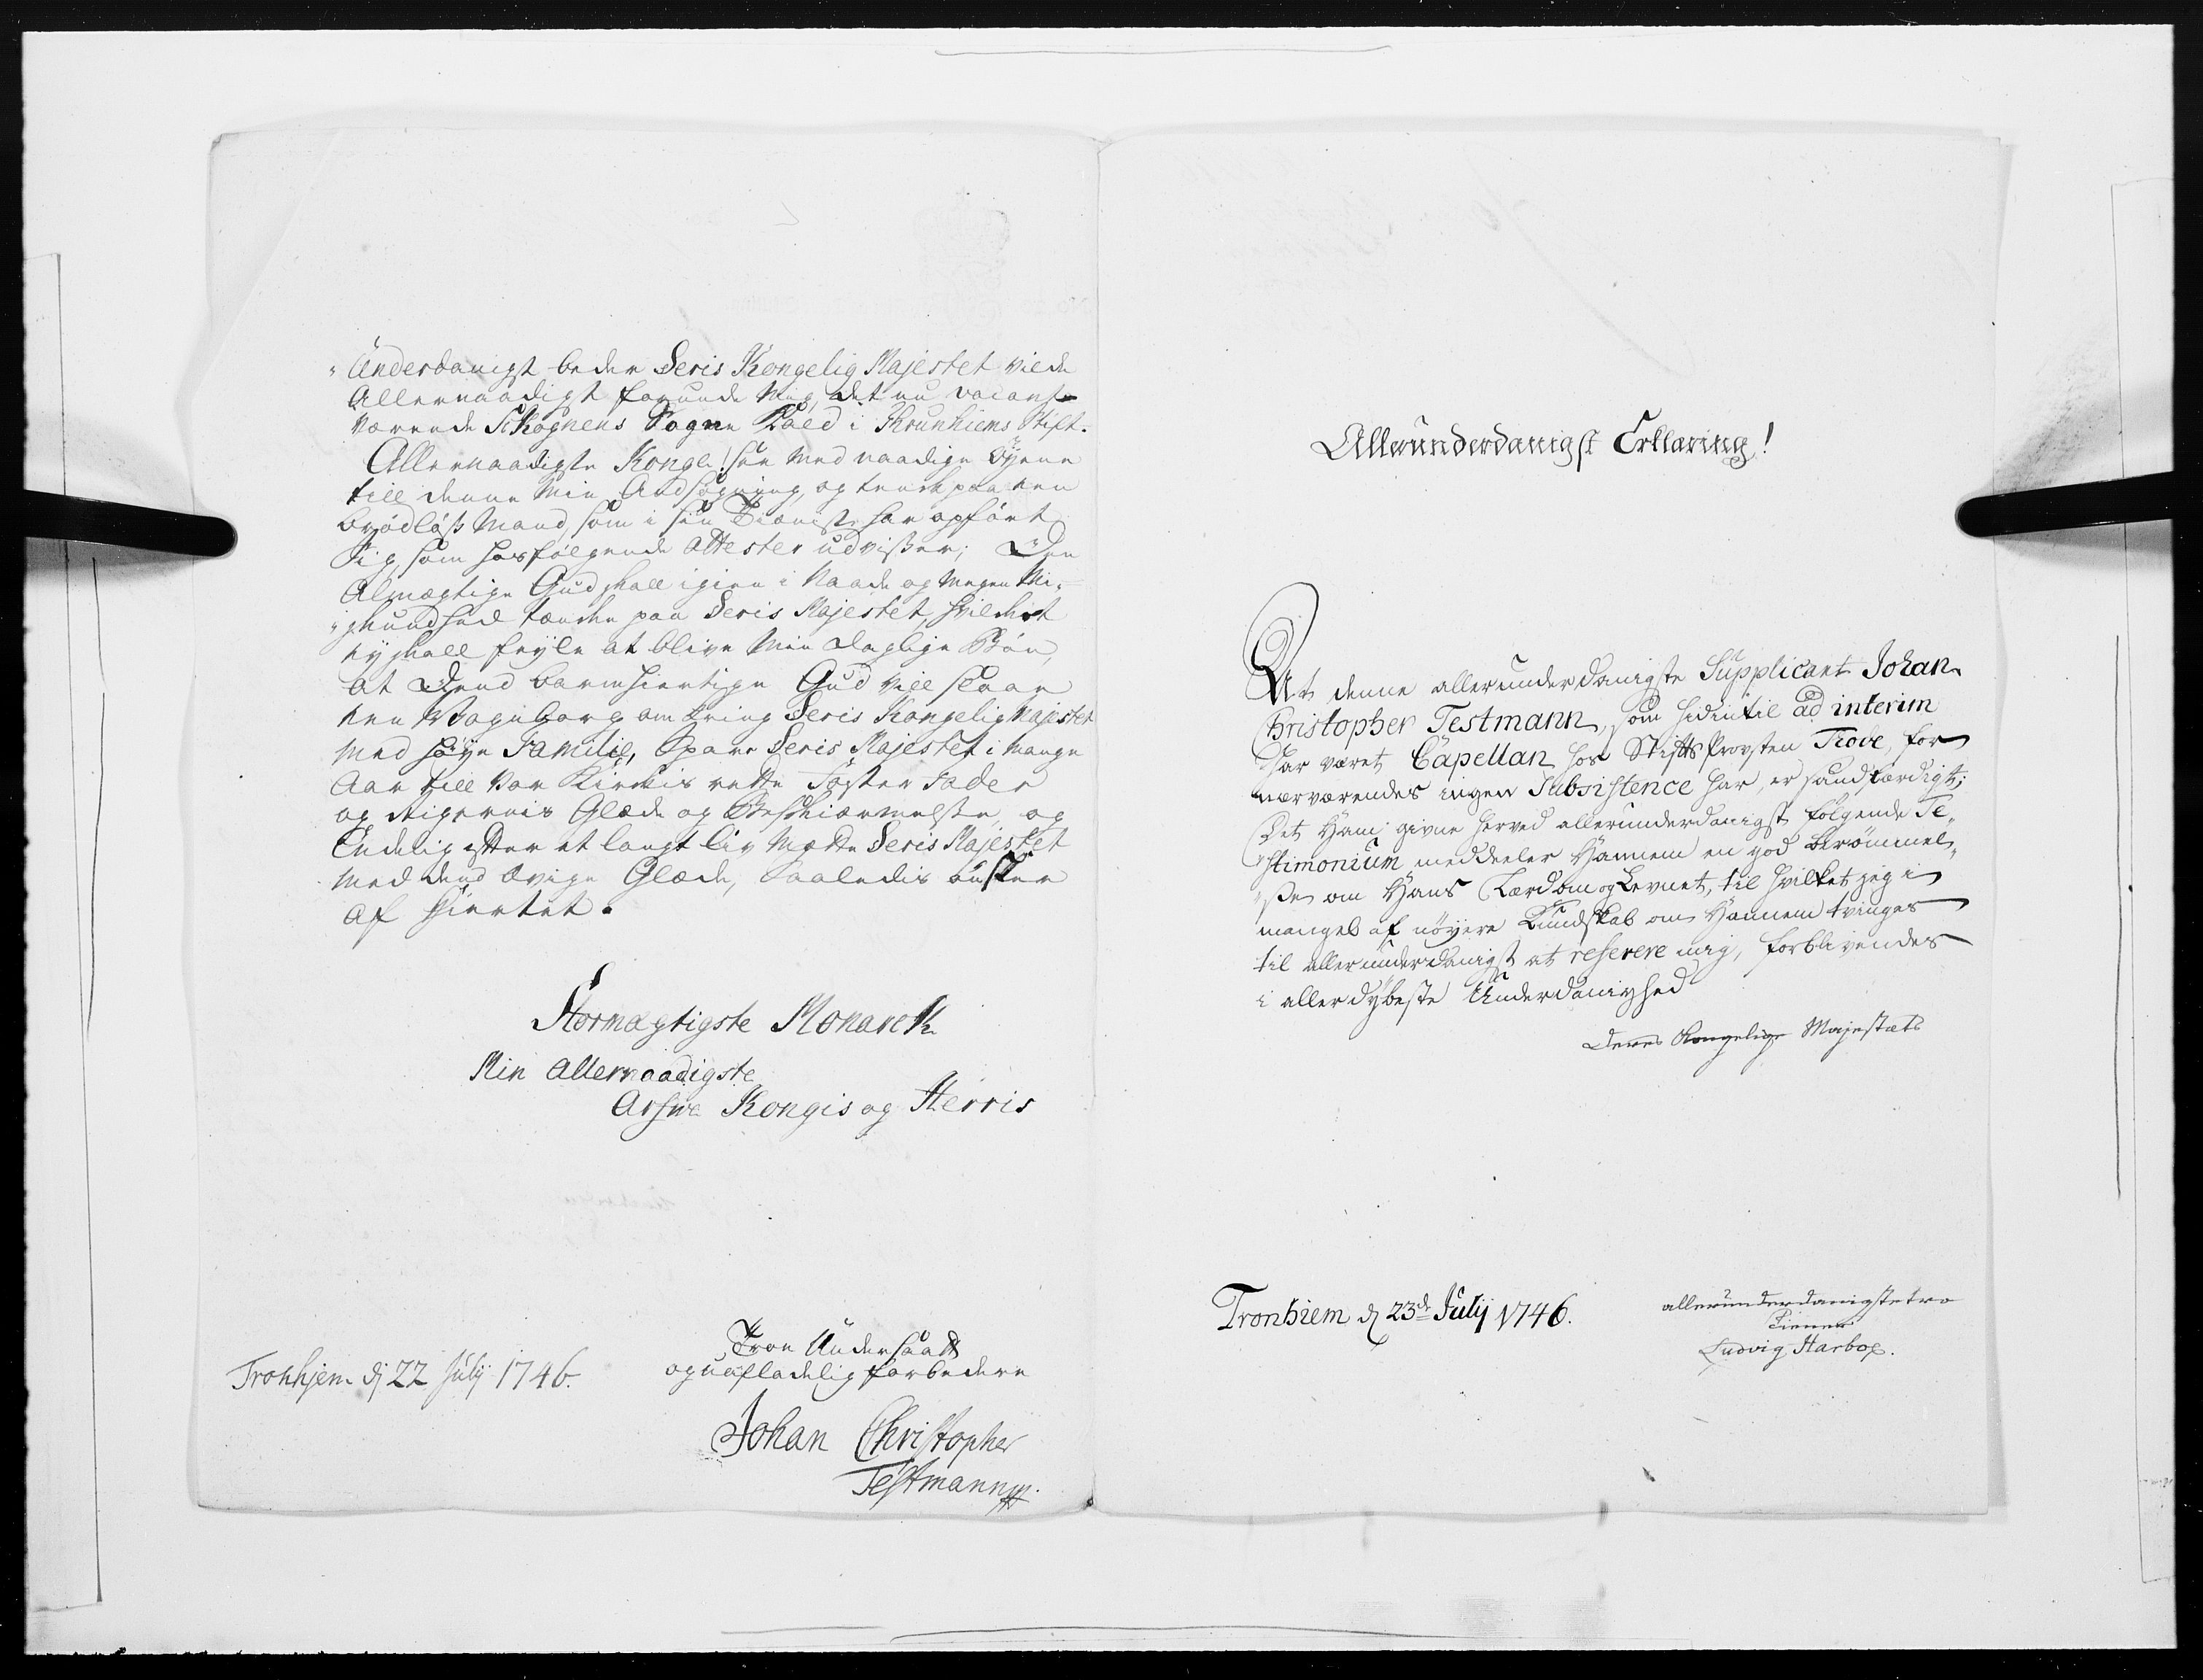 "Underdanigst beder Deris Kongelig Majestet vilde
Allernaadigst forunde Mig, det nu vacansse
værende Schognens Sogne Kald i Thrunhiems Stift.
Allernaadigste Konge! See med naadige Øyene
till denne Min Andsøgning, og tenk paa een
brødløs Mand, som i sin Tieneste har opført
Sig, som hosfølgende Attester udvisser; Den
Almægtige Gud skall igien i Naade og Megen Mi-
"skundhed tænke paa Deris Majestet, hvilket
ey skall feyle at blive Min Daglige Bøn,
at Dend barmhiertige Gud vill slaae
een Vognborg omkring Deris Kongelig Majestet
Med høye Familie, Spare Deris Majestet i Mange
Aar till vor Kirkis rette Foster Fader
og Rigernis Glæde og Beschiermelse, og
Endelig efter et langt liv Mætte Deris Majestet
Med dend Evige Glæde, Saaledis ønsker
af Hiertet.
Stormægtigste Monarch
Min Allernaadigste
Arfwe Kongis og Herris
Tronhjem dj 22 Julij 1746.
Troe Undersaatt
og uafladelig forbedere
Johan Christopher
Testmann
Allerunderdanigst Erklæring!
At denne allerunderdanigste Supplicant Johan
Christopher Testmann, som hidintil ad interim
har været Capellan hos Stifts Provsten Trove, for
nærværendes ingen Subsistence har, er sandfærdigt;
Det Ham givne herved allerunderdanigst følgende Te-
"stimonium meddeeler Hannem en god berømmel-
"se om Hans Lærdom og Levnet, til hvilket jeg i
mangel af nøyere Kundskab om Hannem tvinges
til allerunderdanigst at referere mig, forblivendes
i aller dybeste Underdanighed
Deres Kongelige Majestæts
Tronhiem d 23de Julij 1746.
allerunderdanigste troe
Tiener
Ludvig Harboe.